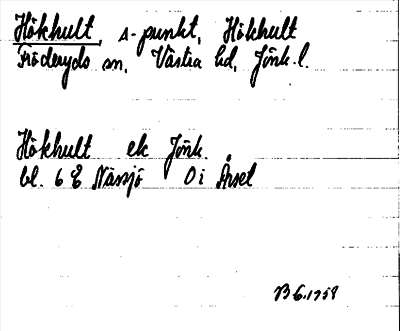 Hökhult, s-punkt, Hökhult
Fröderyds sn, Västra hd, Jönk. l.
Hökhult ek Jönk.
bl. 6 E Nässjö O i Årsel
B 6.1958